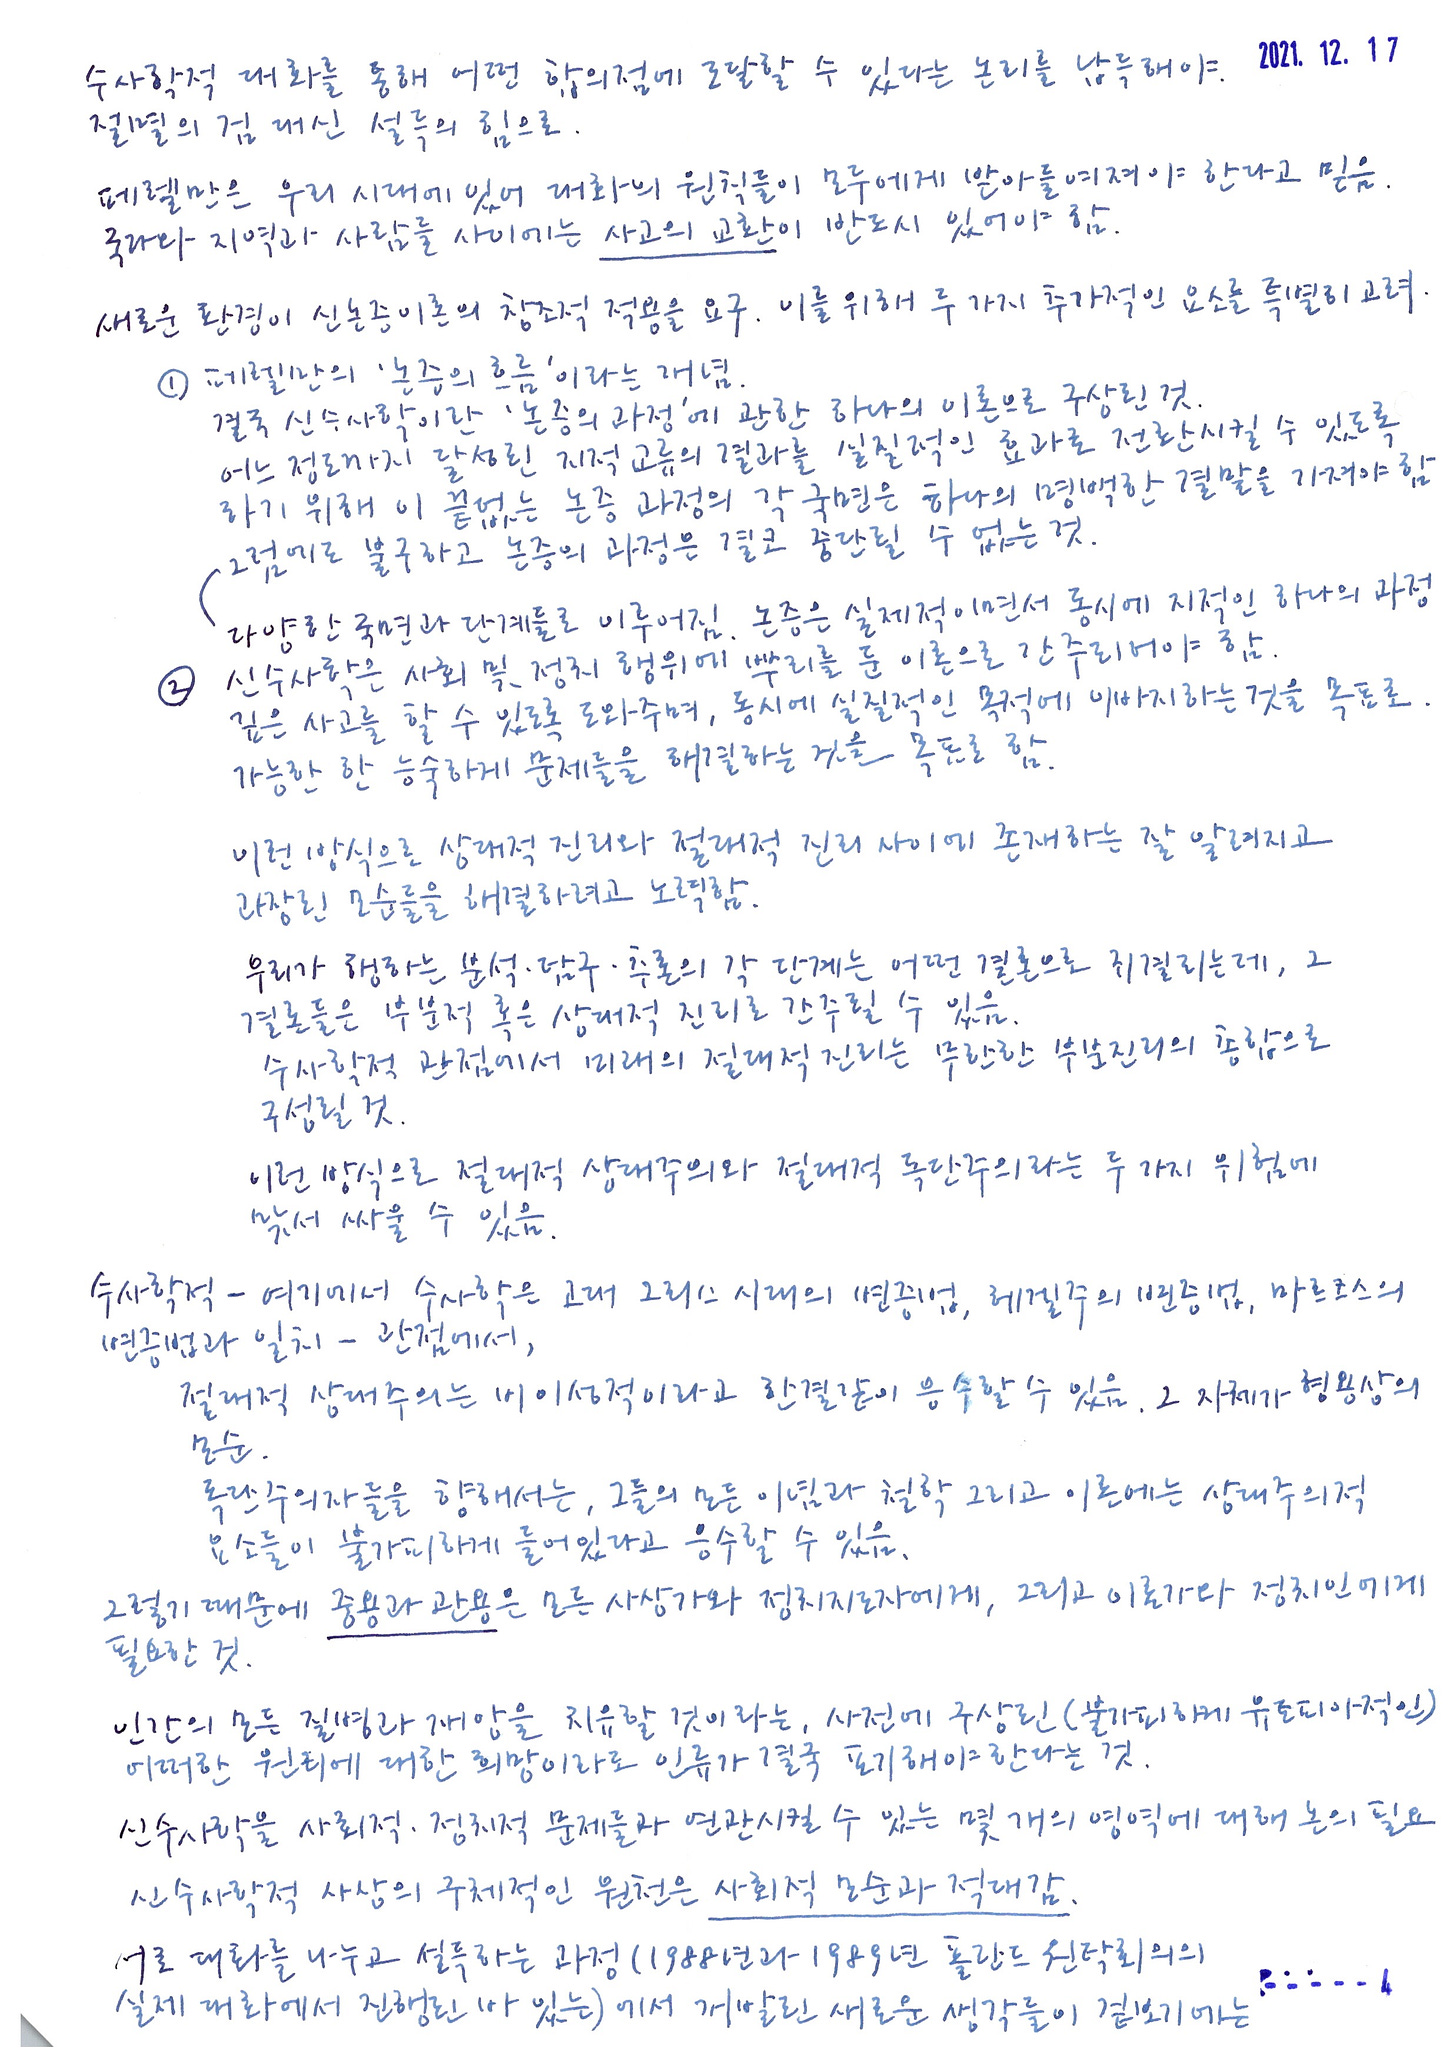 2021. 12. 17
수사학적 대화를 통해 어떤 합의점에 도달할 수 있다는 논리를 납득해야.
절멸의 검 대신 설득의 힘으로.
페렐만은 우리 시대에 있어 대화의 원칙들이 모두에게 받아들여져야 한다고 믿음.
국가와 지역과 사람들 사이에는 사고의 교환이 반드시 있어야 함.
새로운 환경이 신논증이론의 창조적 적용을 요구. 이를 위해 두 가지 추가적인 요소를 특별히 고려.
① 페렐만의 '논증의 흐름'이라는 개념.
결국 신수사학이란 '논증의 과정'에 관한 하나의 이론으로 구상된 것.
어느 정도까지 달성된 지적 교류의 결과를 실질적인 효과로 전환시킬 수 있도록
하기 위해 이 끝없는 논증 과정의 각 국면은 하나의 명백한 결말을 가져야 함
그럼에도 불구하고 논증의 과정은 결코 중단될 수 없는 것.
다양한 국면과 단계들로 이루어짐. 논증은 실제적이면서 동시에 지적인 하나의 과정
② 신수사학은 사회 및 정치 행위에 뿌리를 둔 이론으로 간주되어야 함.
깊은 사고를 할 수 있도록 도와주며, 동시에 실질적인 목적에 이바지하는 것을 목표로.
가능한 한 능숙하게 문제들을 해결하는 것을 목표로 함.
이런 방식으로 상대적 진리와 절대적 진리 사이에 존재하는 잘 알려지고
과장된 모순들을 해결하려고 노력함.
우리가 행하는 분석·탐구·추론의 각 단계는 어떤 결론으로 귀결되는데, 그
결론들은 부분적 혹은 상대적 진리로 간주될 수 있음.
수사학적 관점에서 미래의 절대적 진리는 무한한 부분진리의 통합으로
구성될 것.
이런 방식으로 절대적 상대주의와 절대적 독단주의라는 두 가지 위험에
맞서 싸울 수 있음.
수사학적 - 여기에서 수사학은 고대 그리스 시대의 변증법, 헤겔주의 변증법, 마르크스의
변증법과 일치 - 관점에서,
절대적 상대주의는 비이성적이라고 한결같이 응수할 수 있음. 그 자체가 형용상의
모순.
독단주의자들을 향해서는, 그들의 모든 이념과 철학 그리고 이론에는 상대주의적
요소들이 불가피하게 들어있다고 응수할 수 있음.
그렇기 때문에 중용과 관용은 모든 사상가와 정치지도자에게, 그리고 이론가와 정치인에게
필요한 것.
인간의 모든 질병과 재앙을 치유할 것이라는, 사전에 구상된 (불가피하게 유토피아적인)
어떠한 원리에 대한 희망이라도 인류가 결국 포기해야 한다는 것.
신수사학을 사회적·정치적 문제들과 연관시킬 수 있는 몇 개의 영역에 대해 논의 필요
신수사학적 사상의 구체적인 원천은 사회적 모순과 적대감.
서로 대화를 나누고 설득하는 과정 (1988년과 1989년 폴란드 원탁회의의
실제 대화에서 진행된 바 있는) 에서 개발된 새로운 생각들이 겉보기에는